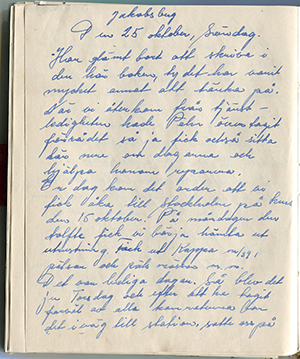 Jakobsberg
Den 25 oktober, Söndag.
Har glömt bort att skriva i
den här boken, ty det har varit
mycket annat att tänka på.
När vi återkom från tjänst-
ledigheten hade Pelr övertagit
förrådet så ja fick också sitta
där nere och dagarna och
hjälpa honom reparera.
En dag kom det order att vi
fick åka till Stockholm på kurs
den 15 oktober. På måndagen den
tolfte fick vi börja hämta ut
utrustning, fick ut Kappa m/39,
pälsar och päls västar m.m.
Det var lediga dagar. Så blev det
ju Torsdag och efter att ha tagit
farväl av alla kamraterna bar
det iväg till station, satte oss på